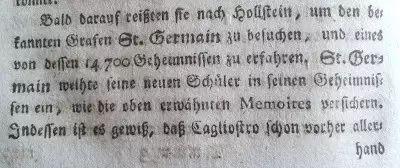 Bald darauf reißten sie nach Hollstein, um den be-
kannten Grafen St. Germain zu besuchen, und eines
von dessen 14,700 Geheimnissen zu erfahren. St. Ger-
main weihte seine neuen Schüler in seinen Geheimnis-
sen ein, wie die oben erwähnten Memoires versichern.
Indessen ist es gewiß, daß Cagliostro schon vorher aller-
hand